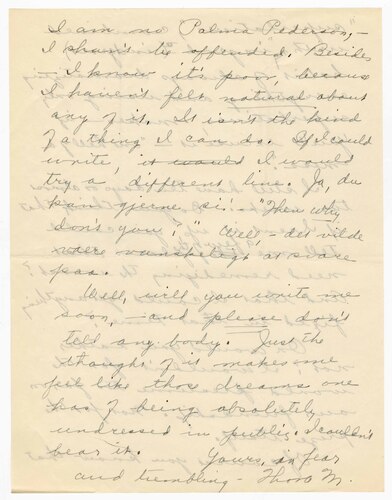 I am no Palma Pederson, –
I shan't be offended. Besides
– I know it's poor, because
I haven't felt natural about
any of it. It isn't the kind
of a thing I can do. If I could
write, it would I would
try a different line. Ja, du
kan gjerne si: "Then why
don't you?" Well, – det vilde
være vanskeligt at svare
paa.
Well, will you write me
soon, – and please don't
tell any body. Just the
thought of it makes me
feel like those dreams one
has of being absolutely
undressed in public. I couldn't
bear it. Yours, in fear
and trembling – Thora M.